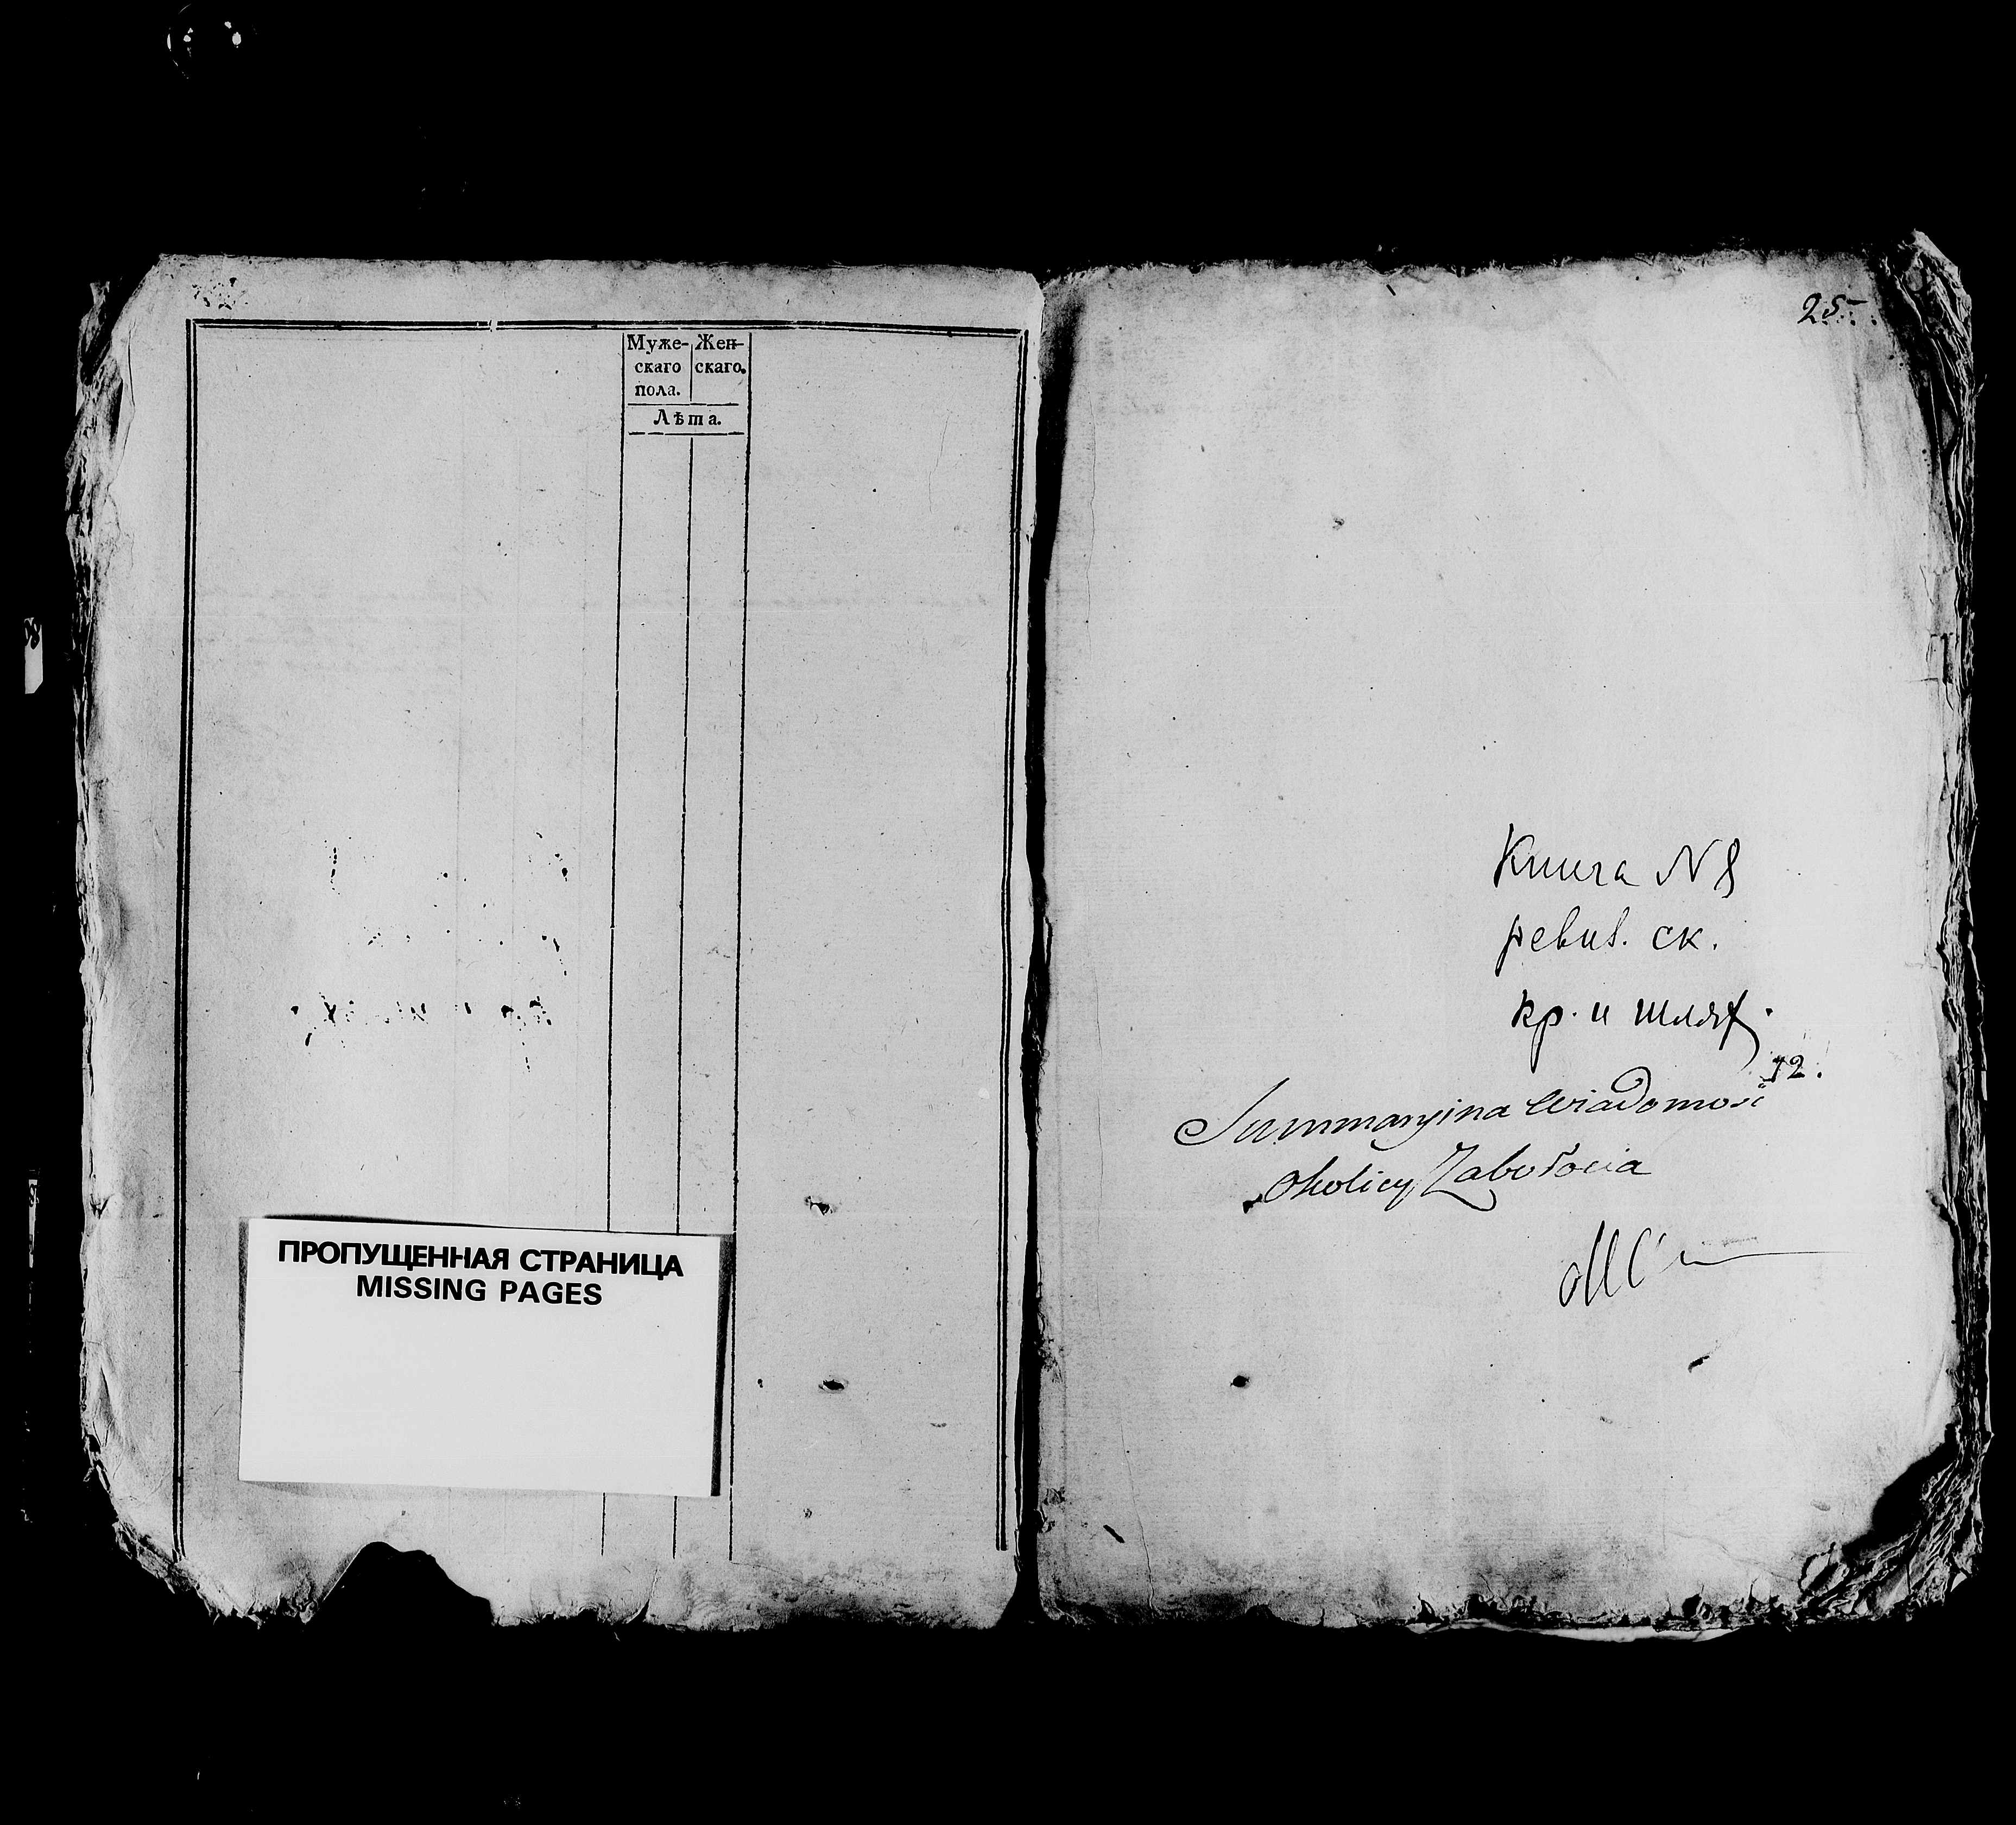 Муже- Жен-
скаго скаго.
пола.
Лѣта.
ПРОПУЩЕННАЯ СТРАНИЦА
MISSING PAGES
25.
Книга N 8
ревиз. ск.
кр. и шлях.
12.
Summaryina Wiadomość
okolicy Zabołocia